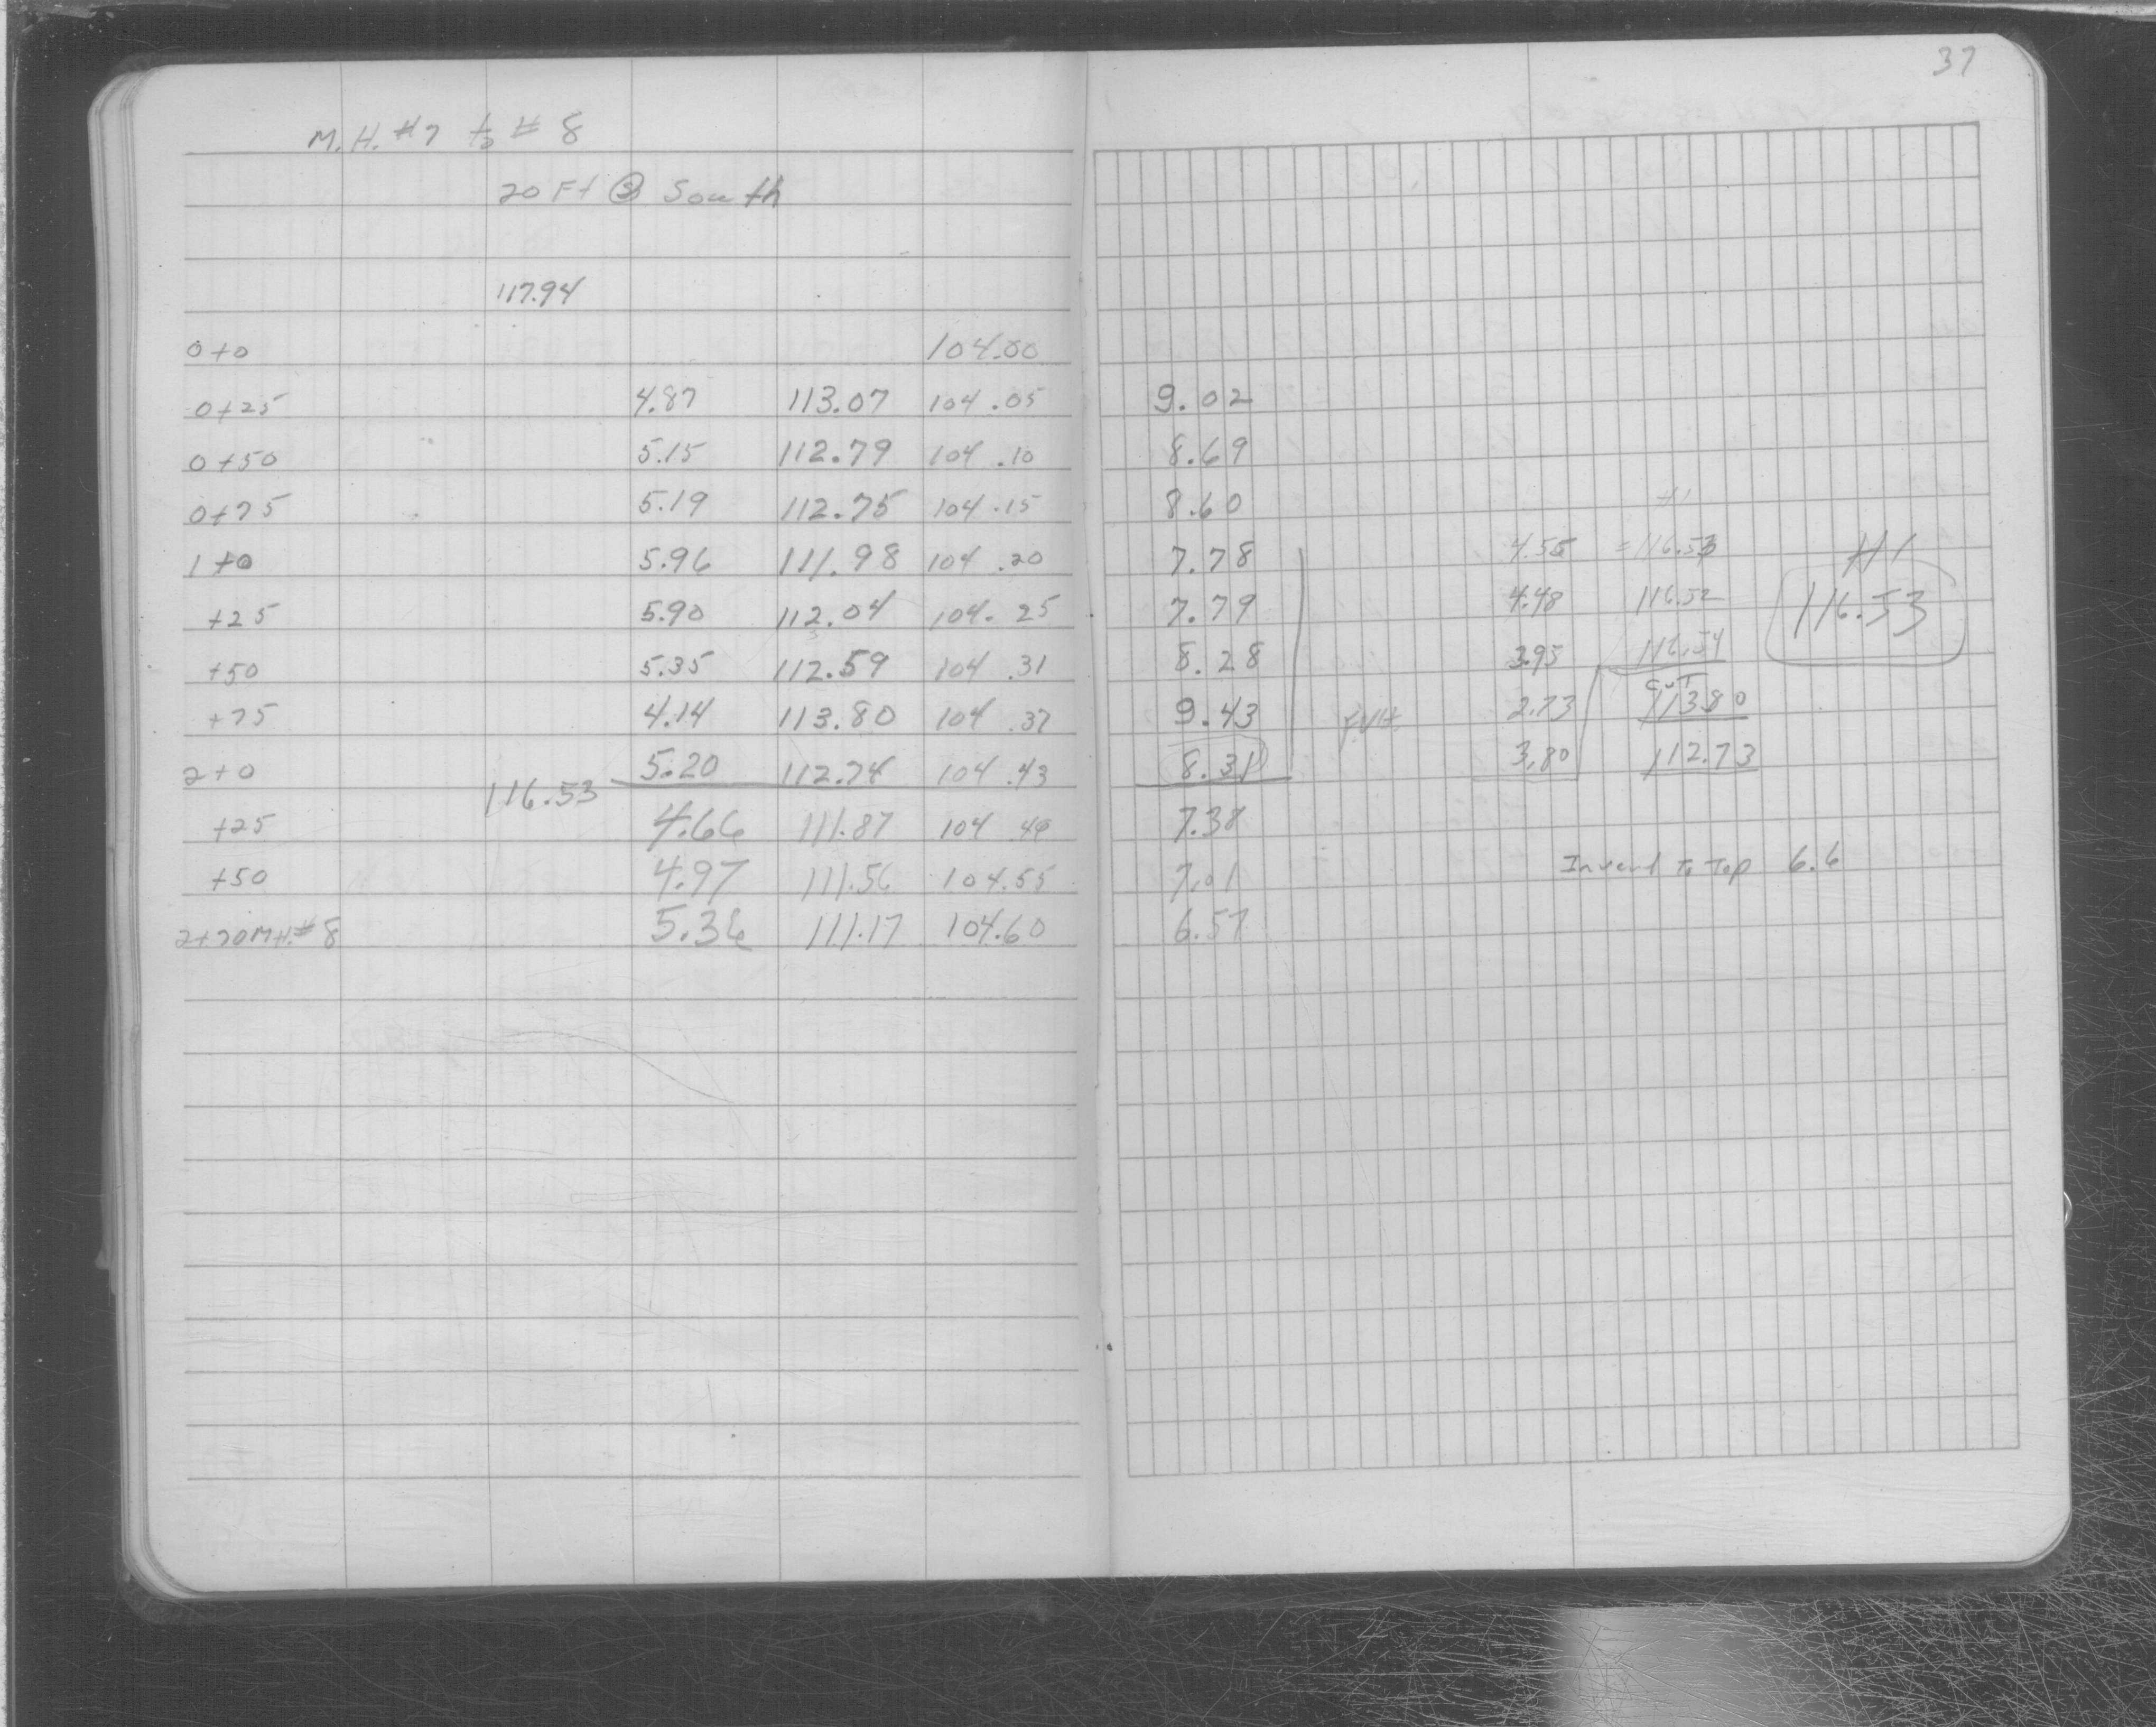 37
M.H. #7 to # 8
20 Ft @ South
117.94
0+0 104.00
0+25 4.87 113.07 104.05 9.02
0+50 5.15 112.79 104.10 8.69
0+75 5.19 112.75 104.15 8.60 HI
1+0 5.96 111.98 104.20 7.78 4.55 = 116.53 HI
+25 5.90 112.04 104.25 7.79 4.48 116.52 116.53
+50 5.35 112.59 104.31 8.28 3.95 116.54
+75 4.14 113.80 104.37 9.43 2.73 113.80
2+0 5.20 112.74 104.43 8.31 3.80 112.73
116.53
+25 4.66 111.87 104.49 7.38
+50 4.97 111.56 104.55 7.01 Invert To Top 6.6
2+70 M.H.#8 5.36 111.17 104.60 6.57